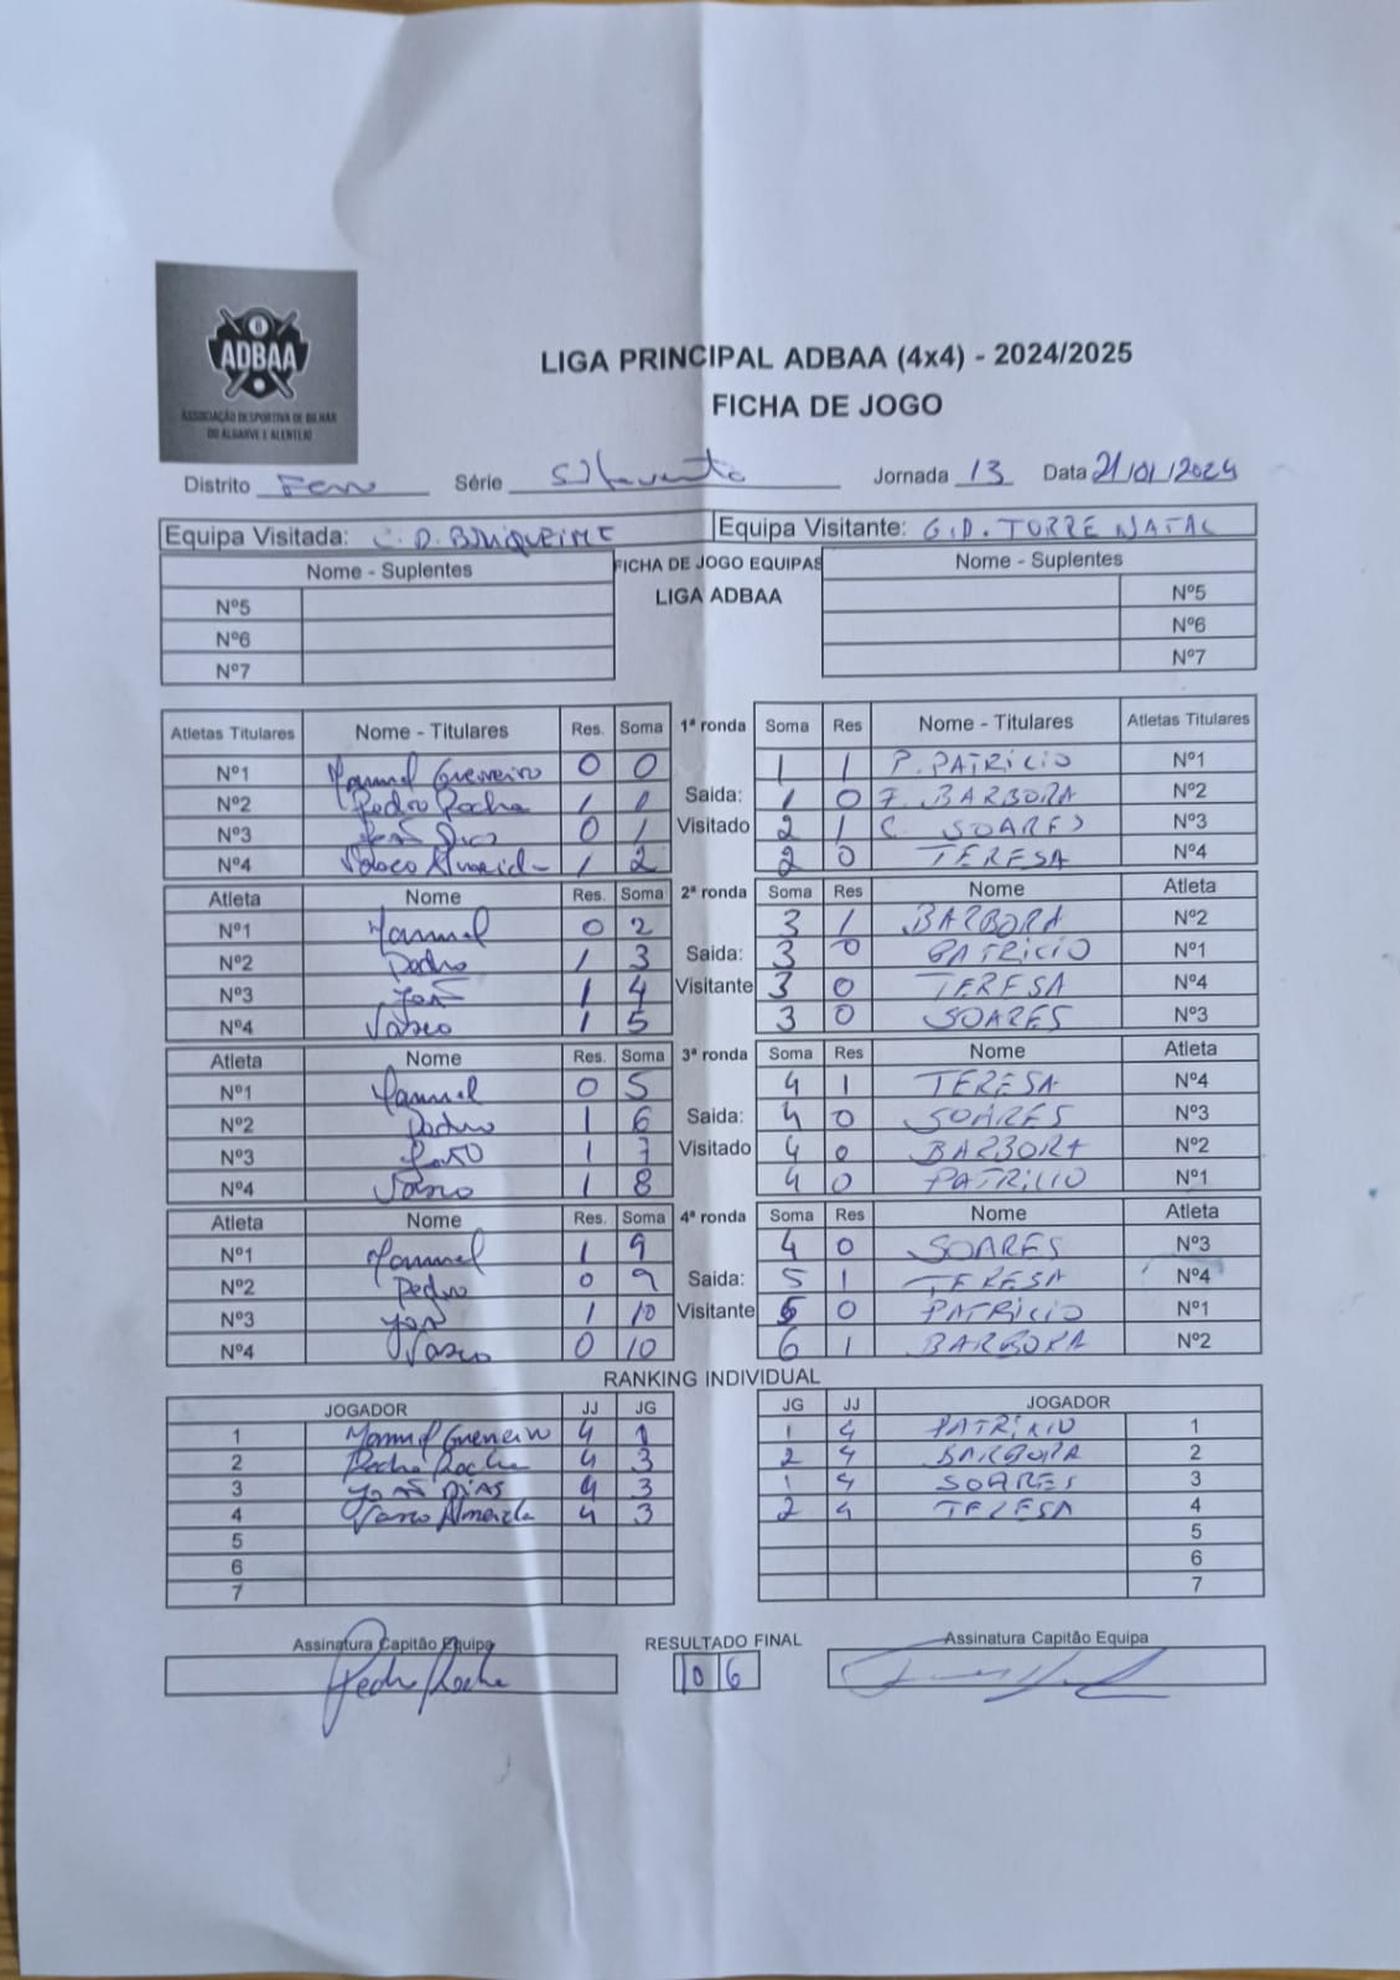 ADBAA
ASSOCIAÇÃO DESPORTIVA DE BILHAR
DO ALGARVE E ALENTEJO
LIGA PRINCIPAL ADBAA (4x4) - 2024/2025
FICHA DE JOGO
Distrito Série Jornada 13 Data 21/01/2025
Equipa Visitada: C.D. BOLIQUEIME Equipa Visitante: G.D. TORRE NATAL
Nome - Suplentes FICHA DE JOGO EQUIPAS Nome - Suplentes
Nº5 LIGA ADBAA Nº5
Nº6 Nº6
Nº7 Nº7
Atletas Titulares Nome - Titulares Res. Soma 1ª ronda Soma Res Nome - Titulares Atletas Titulares
Nº1 Manuel Guerreiro 0 0 1 1 P. PATRICIO Nº1
Nº2 Pedro Rocha 1 1 Saida: 1 0 F. BARBORA Nº2
Nº3 João Dias 0 1 Visitado 2 1 C. SOARES Nº3
Nº4 Vasco Almeida 1 2 2 0 TERESA Nº4
Atleta Nome Res. Soma 2ª ronda Soma Res Nome Atleta
Nº1 Manuel 0 2 3 1 BARBORA Nº2
Nº2 Pedro 1 3 Saida: 3 0 PATRICIO Nº1
Nº3 João 1 4 Visitante 3 0 TERESA Nº4
Nº4 Vasco 1 5 3 0 SOARES Nº3
Atleta Nome Res. Soma 3ª ronda Soma Res Nome Atleta
Nº1 Manuel 0 5 4 1 TERESA Nº4
Nº2 Pedro 1 6 Saida: 4 0 SOARES Nº3
Nº3 João 1 7 Visitado 4 0 BARBORA Nº2
Nº4 Vasco 1 8 4 0 PATRICIO Nº1
Atleta Nome Res. Soma 4ª ronda Soma Res Nome Atleta
Nº1 Manuel 1 9 4 0 SOARES Nº3
Nº2 Pedro 0 9 Saida: 5 1 TERESA Nº4
Nº3 João 1 10 Visitante 5 0 PATRICIO Nº1
Nº4 Vasco 0 10 6 1 BARBORA Nº2
RANKING INDIVIDUAL
JOGADOR JJ JG JG JJ JOGADOR
1 Manuel Guerreiro 4 1 1 4 PATRICIO 1
2 Pedro Rocha 4 3 2 4 BARBORA 2
3 JOÃO DIAS 4 3 1 4 SOARES 3
4 Vasco Almeida 4 3 2 4 TERESA 4
5 5
6 6
7 7
Assinatura Capitão Equipa RESULTADO FINAL Assinatura Capitão Equipa
Pedro Rocha 10 6